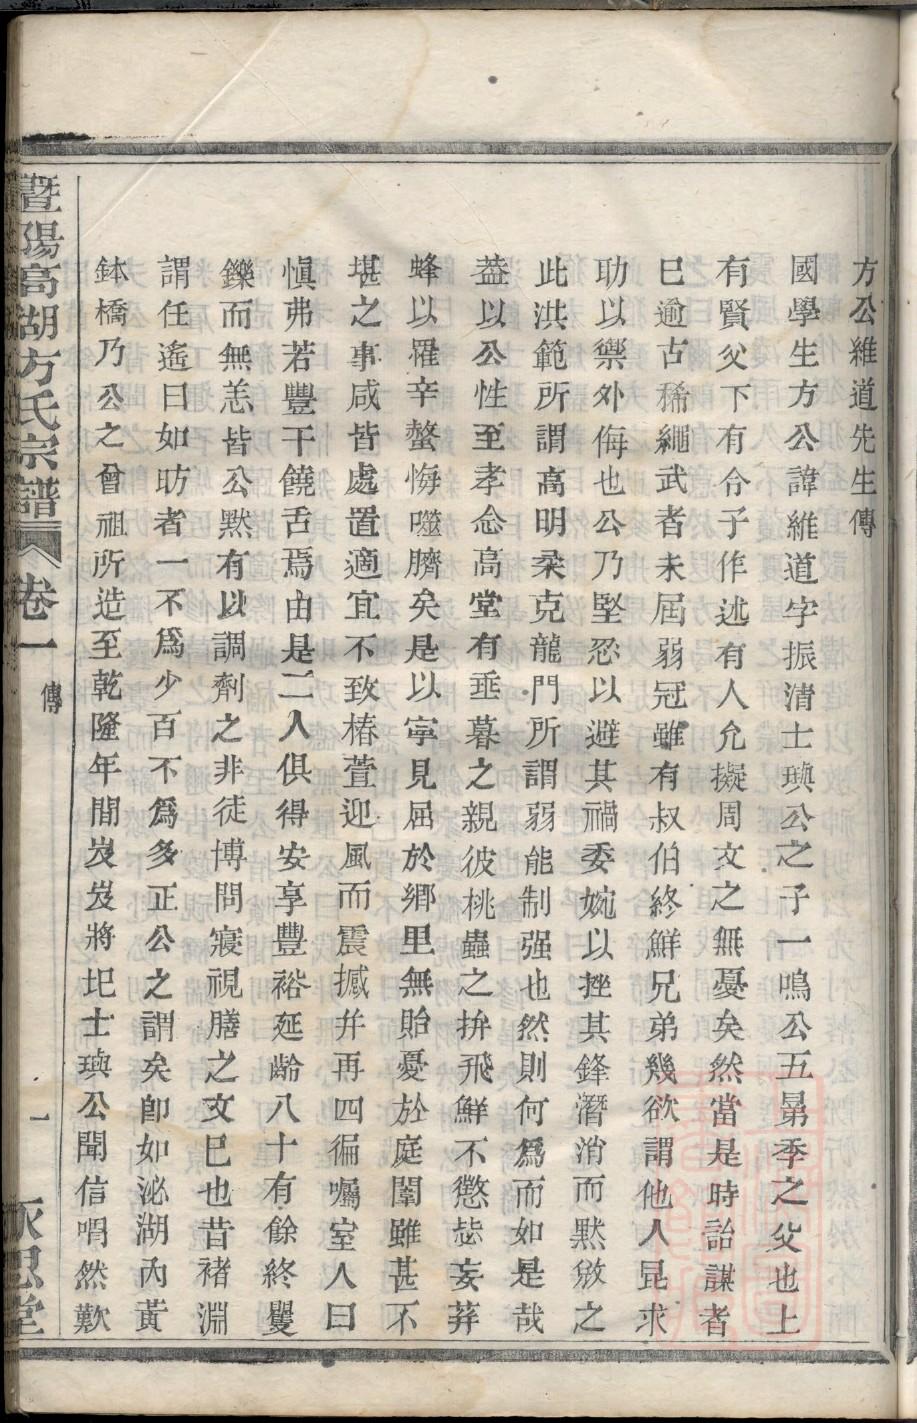 方公維道先生傳
國學生方公諱維道字振清士璵公之子一鳴公五昴季之父也上
有賢父下有令子作述有人允擬周文之無憂矣然當是時詒謀者
巳逾古稀繩武者未屆弱冠雖有叔伯終鮮兄弟幾欲謂他人昆求
助以禦外侮也公乃堅忍以避其禍委婉以挫其鋒潛消而默敓之
此洪範所謂高明柔克龍門所謂弱能制强也然則何爲而如是哉
葢以公性至孝念高堂有垂暮之親彼桃蟲之拚飛鮮不懲毖妄莽
蜂以罹辛螫悔噬臍矣是以寧見屈於鄉里無貽憂於庭闈雖甚不
堪之事咸皆處置適宜不致椿萱迎風而震撼幷再四徧囑室人曰
愼弗若豐干饒舌焉由是二人俱得安享豐裕延齡八十有餘終矍
鑠而無恙皆公默有以調劑之非徒博問寢視膳之文巳也昔褚淵
謂任遙曰如昉者一不爲少百不爲多正公之謂矣卽如泌湖內黃
鉢橋乃公之曾祖所造至乾隆年間岌岌將圯士璵公聞信喟然歎
暨陽高湖方氏宗譜
卷一
傳
一
永思堂